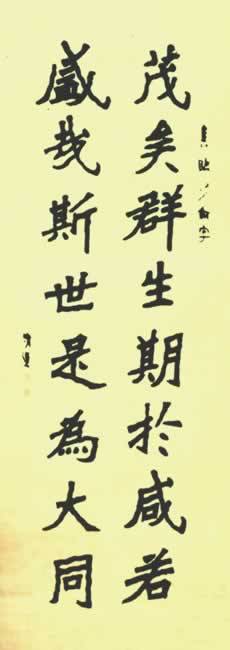 茂矣群生期於咸若
盛哉斯世是為大同